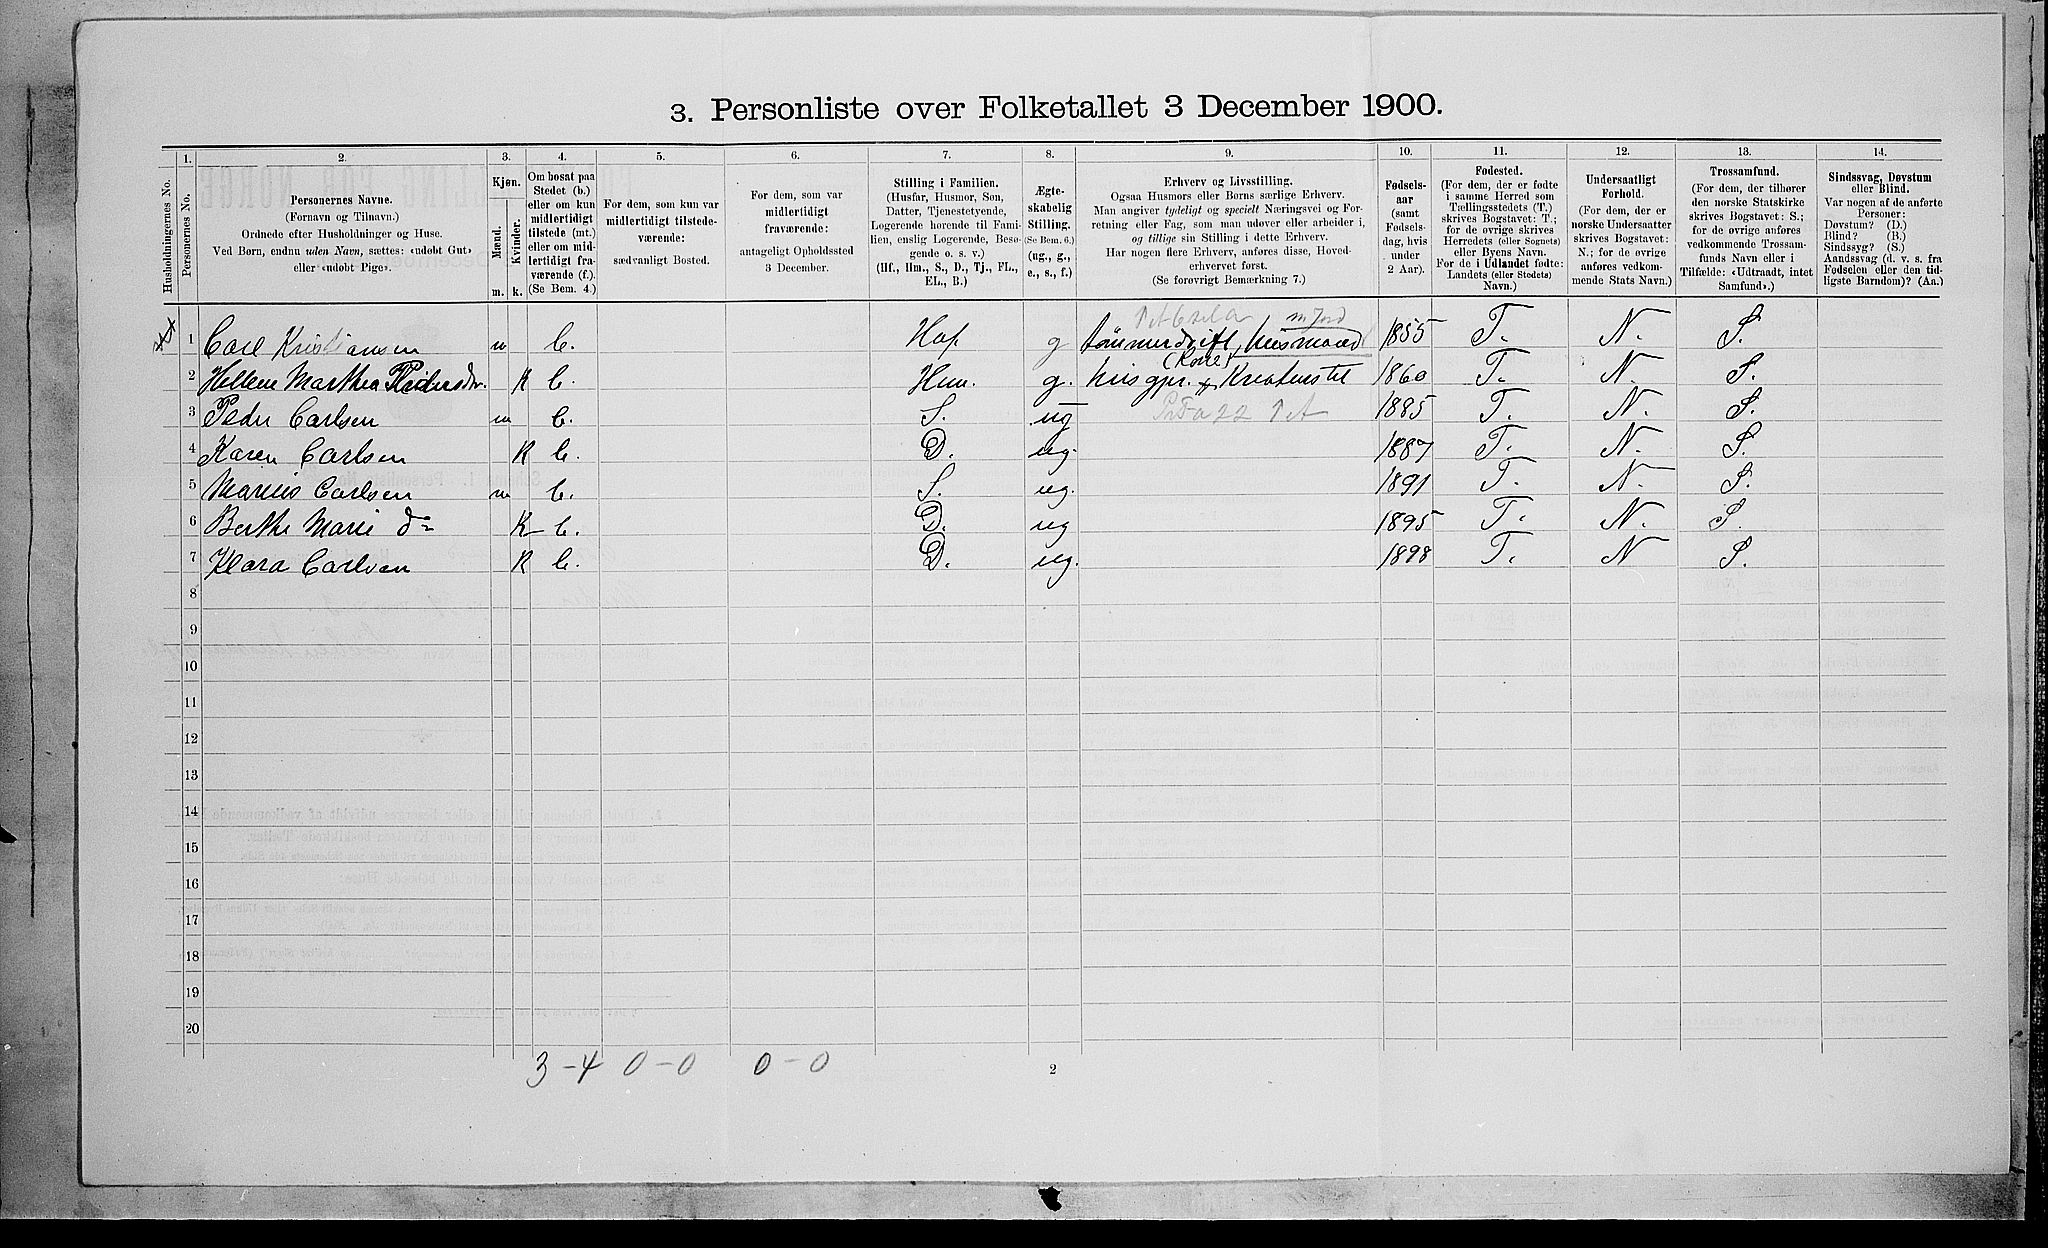 3. Personliste over Folketallet 3 December 1900.
1. 2. 3. 4. 5. 6. 7. 8. 9. 10. 11. 12. 13. 14.
Husholdningernes No.
Personernes No.
Personernes Navne.
(Fornavn og Tilnavn.)
Ordnede efter Husholdninger og Huse.
Ved Børn, endnu uden Navn, sættes: «udøbt Gut»
eller «udøbt Pige».
Kjøn.
Mænd. Kvinder.
m. k.
Om bosat paa
Stedet (b.)
eller om kun
midlertidigt
tilstede (mt.)
eller om mid-
lertidigt fra-
værende (f.).
(Se Bem. 4.)
For dem, som kun var
midlertidigt tilstede-
værende:
sædvanligt Bosted.
For dem, som var
midlertidigt
fraværende:
antageligt Opholdssted
3 December.
Stilling i Familien.
(Husfar, Husmor, Søn,
Datter, Tjenestetyende,
Logerende hørende til Fami-
lien, enslig Logerende, Besø-
gende o. s. v.)
(Hf., Hm., S., D., Tj., FL.,
EL., B.)
Ægte-
skabelig
Stilling.
(Se Bem. 6.)
(ug., g.,
e., s., f.)
Erhverv og Livsstilling.
Ogsaa Husmors eller Børns særlige Erhverv.
Man angiver tydeligt og specielt Næringsvei og For-
retning eller Fag, som man udøver eller arbeider i,
og tillige sin Stilling i dette Erhverv.
Har nogen flere Erhverv, anføres disse, Hoved-
erhvervet først.
(Se forøvrigt Bemærkning 7.)
Fødsels-
aar
(samt
Fødsels-
dag, hvis
under
2 Aar).
Fødested.
(For dem, der er fødte
i samme Herred som
Tællingsstedets (T.)
skrives Bogstavet: T.;
for de øvrige skrives
Herredets (eller Sognets)
eller Byens Navn.
For de i Udlandet fødte:
Landets (eller Stedets)
Navn.)
Undersaatligt
Forhold.
(For dem, der er
norske Undersaatter
skrives Bogstavet:
N.; for de øvrige
anføres vedkom-
mende Stats Navn.)
Trossamfund.
(For dem, der tilhører
den norske Statskirke
skrives Bogstavet: S.;
for de øvrige anføres
vedkommende Trossam-
funds Navn eller i
Tilfælde: «Udtraadt, intet
Samfund».)
Sindssvag, Døvstum
eller Blind.
Var nogen af de anførte
Personer:
Døvstum? (D.)
Blind? (B.)
Sindssyg? (S.)
Aandssvag (d. v. s. fra
Fødselen eller den tid-
ligste Barndom)? (Aa.)
m Jord
1 Carl Kristiansen m b. Hof. g Tømmerdrift, husmand 1855 T. N. S.
(Kone)
2 Hellene Marthea Pedersdtr. k b. Hm. g. husgjer. Kreaturstel 1860 T. N. S.
3 Peder Carlsen m b. S. ug 1885 T. N. S.
4 Karen Carlsen k b. D. ug. 1887 T. N. S.
5 Marius Carlsen m b. S. ug. 1891 T. N. S.
6 Berthe Marie do k b. D. ug 1895 T. N. S.
7 Klara Carlsen k b. D. ug. 1898 T. N S.
8
9
10
11
12
13
14
15
16
17
18
19
20
3-4 0-0 0-0
2